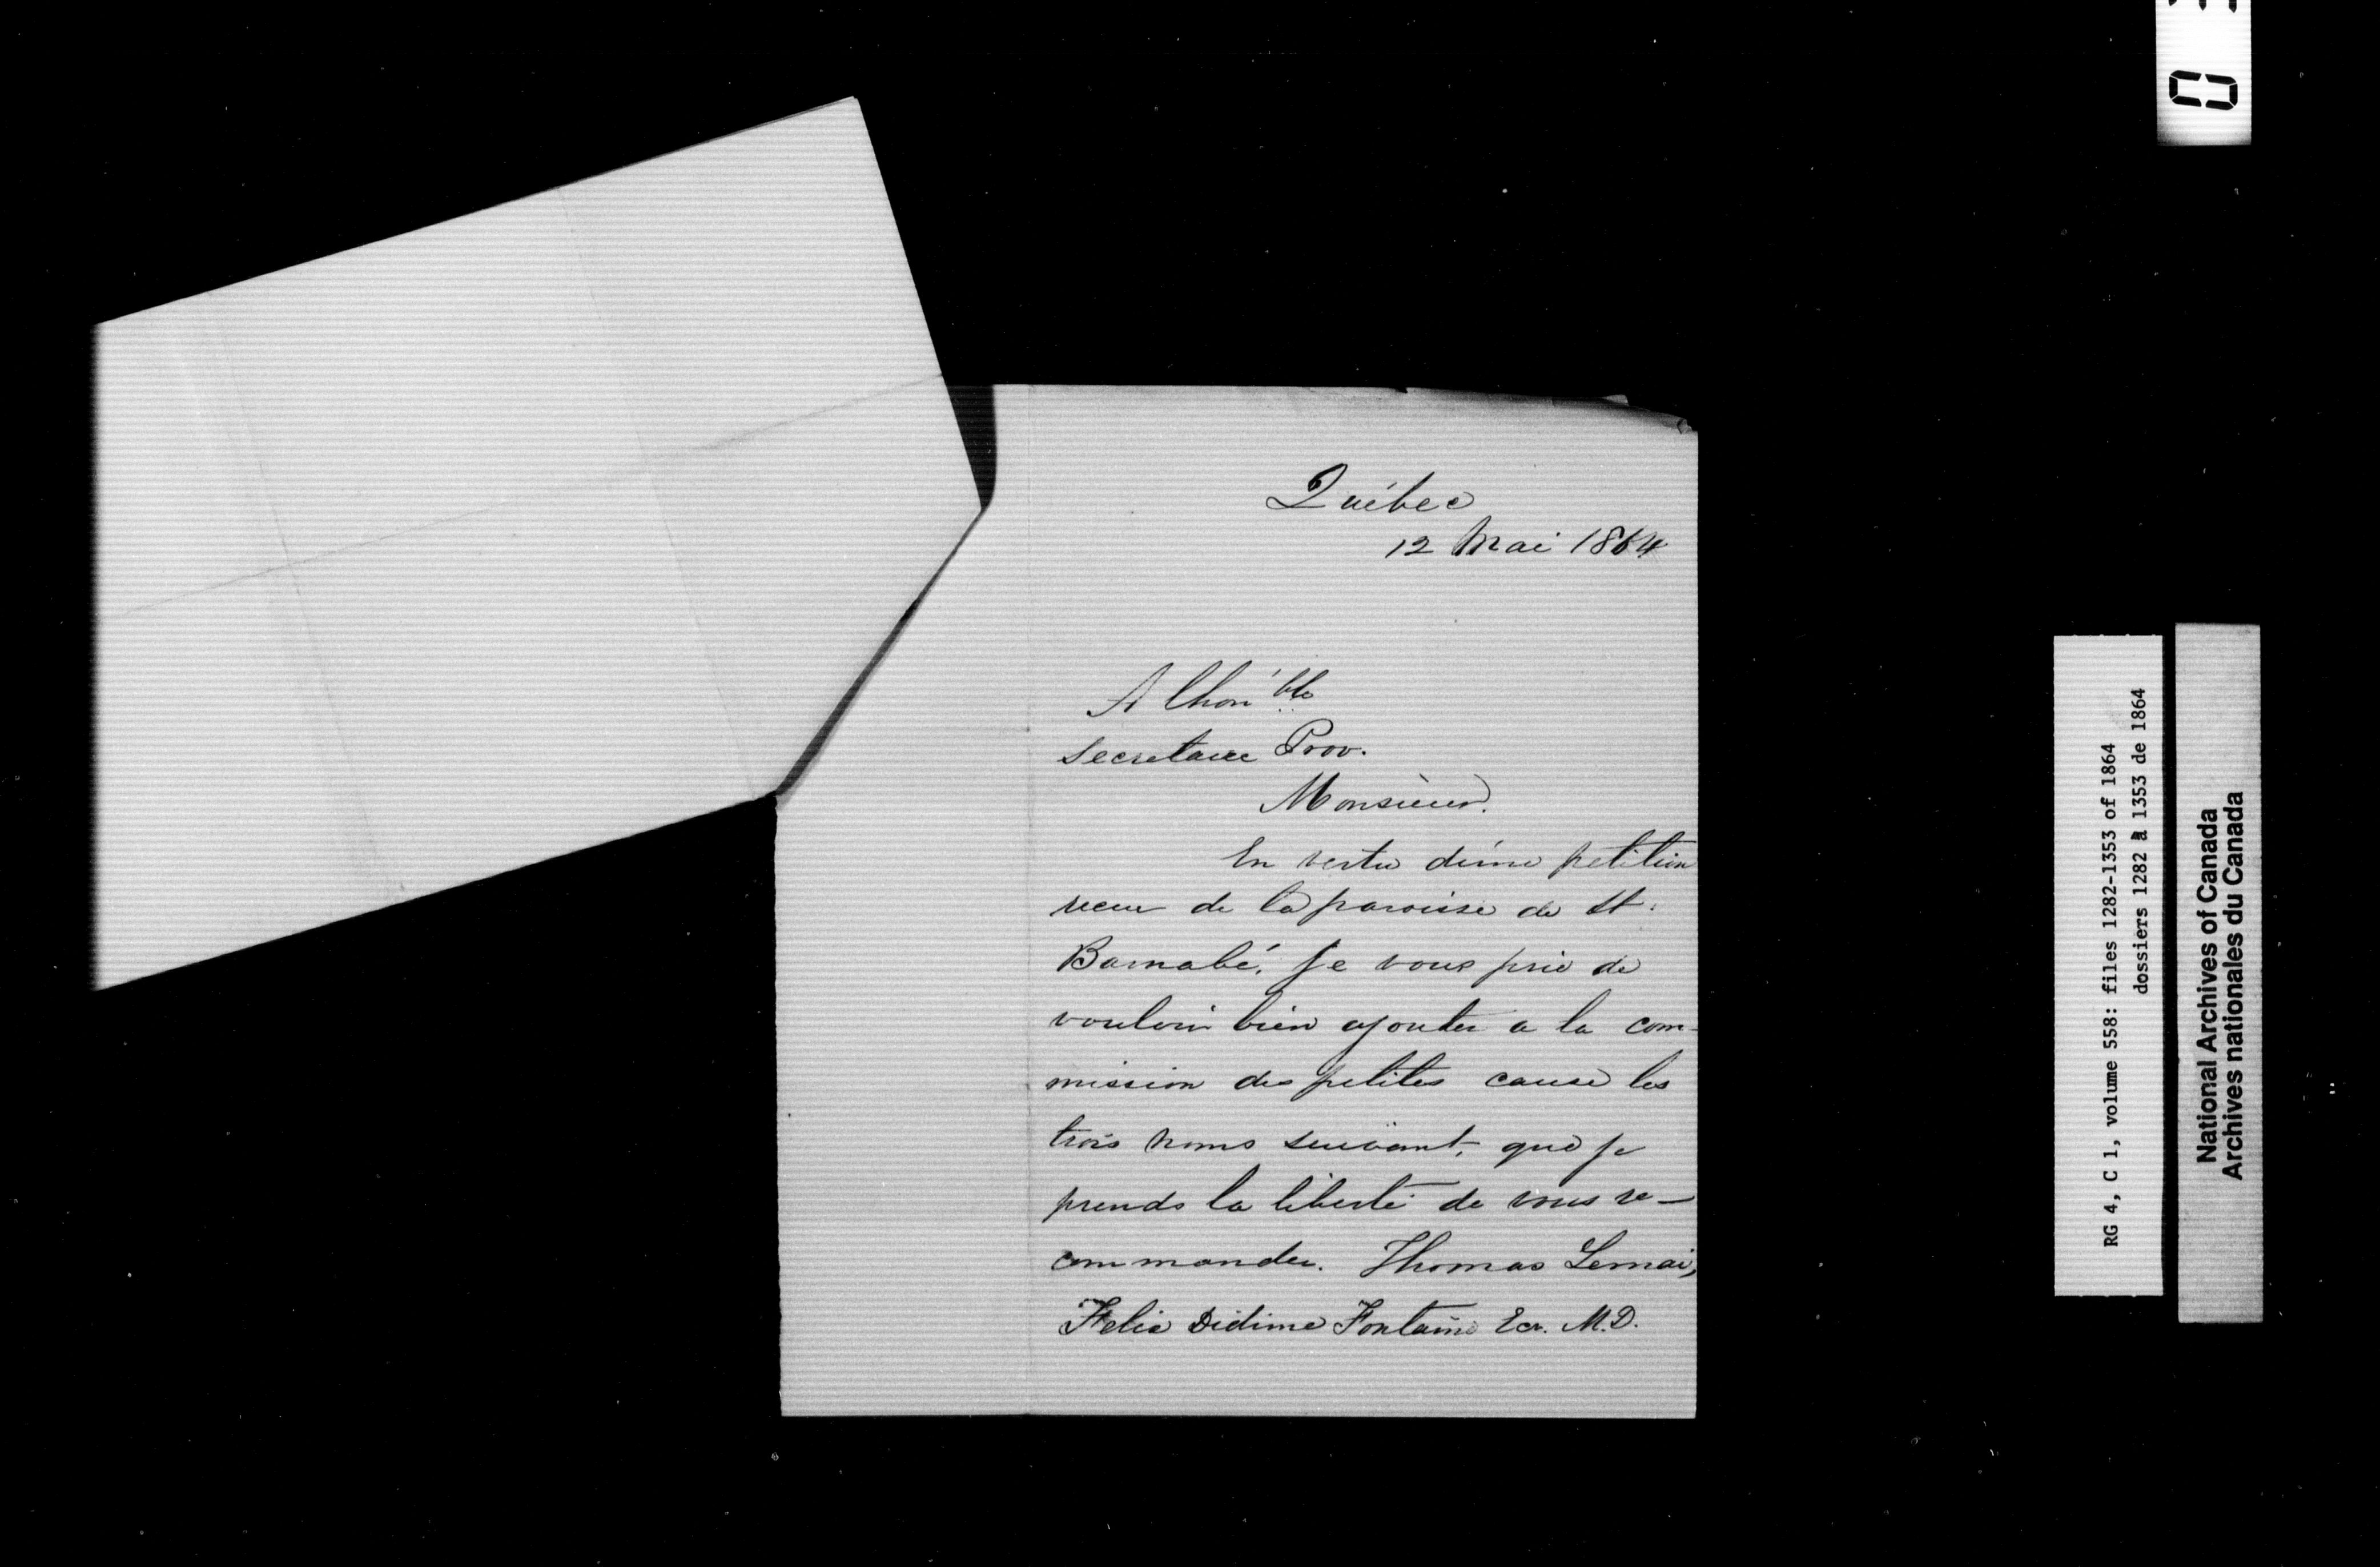 Québec
12 Mai 1864
A lhon'ble
secretaire Prov.
Monsieur.
En vertu d'une petition
recue de la paroisse de St.
Barnabé, je vous prie de
vouloir bien ajouter a la com-
mission des petites cause les
trois noms suivant, que je
prends la liberté de vous re-
commander. Thomas Lemai,
Felix Didime Fontaine Ecr. M.D.
RG 4, C 1, volume 558: files 1282-1353 of 1864
dossiers 1282 à 1353 de 1864
National Archives of Canada
Archives nationales du Canada